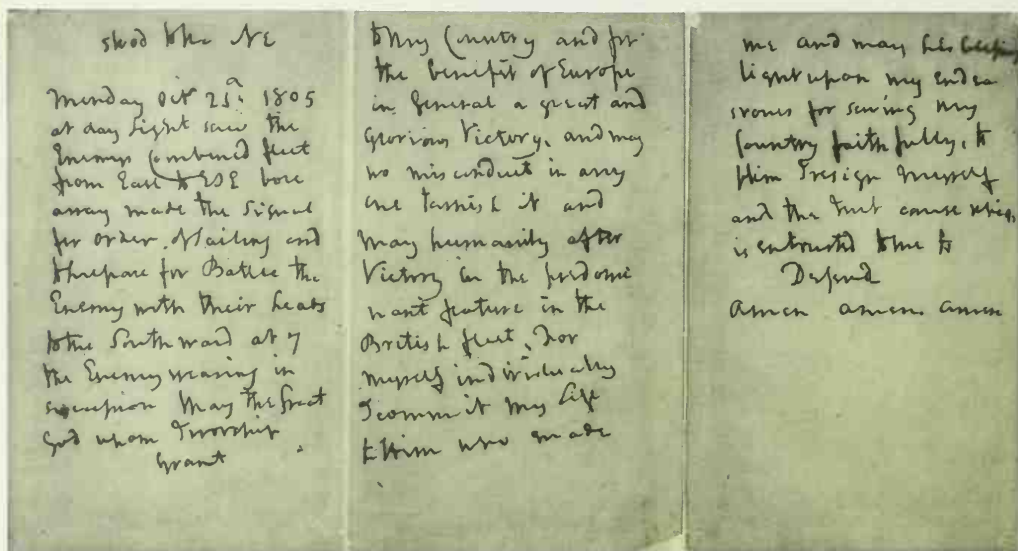 stood to the NE
Monday Oct 21st: 1805
at day Light saw the
Enemys Combined fleet
from East to ESE bore
away made the Signal
for order of sailing and
to prepare for Battle the
Enemy with their heads
to the Southward at 7
the Enemy wearing in
succession May the Great
God whom I worship
Grant
to my Country and for
the benefit of Europe
in General a great and
Glorious Victory, and may
no misconduct in any
one tarnish it and
May humanity after
Victory be the predomi
nant feature in the
British fleet, For
myself individually
I commit my Life
to Him who made
me and may his blessing
light upon my endea
vours for serving My
Country faithfully, to
Him I resign Myself
and the Just cause which
is entrusted to me to
Defend
amen amen amen